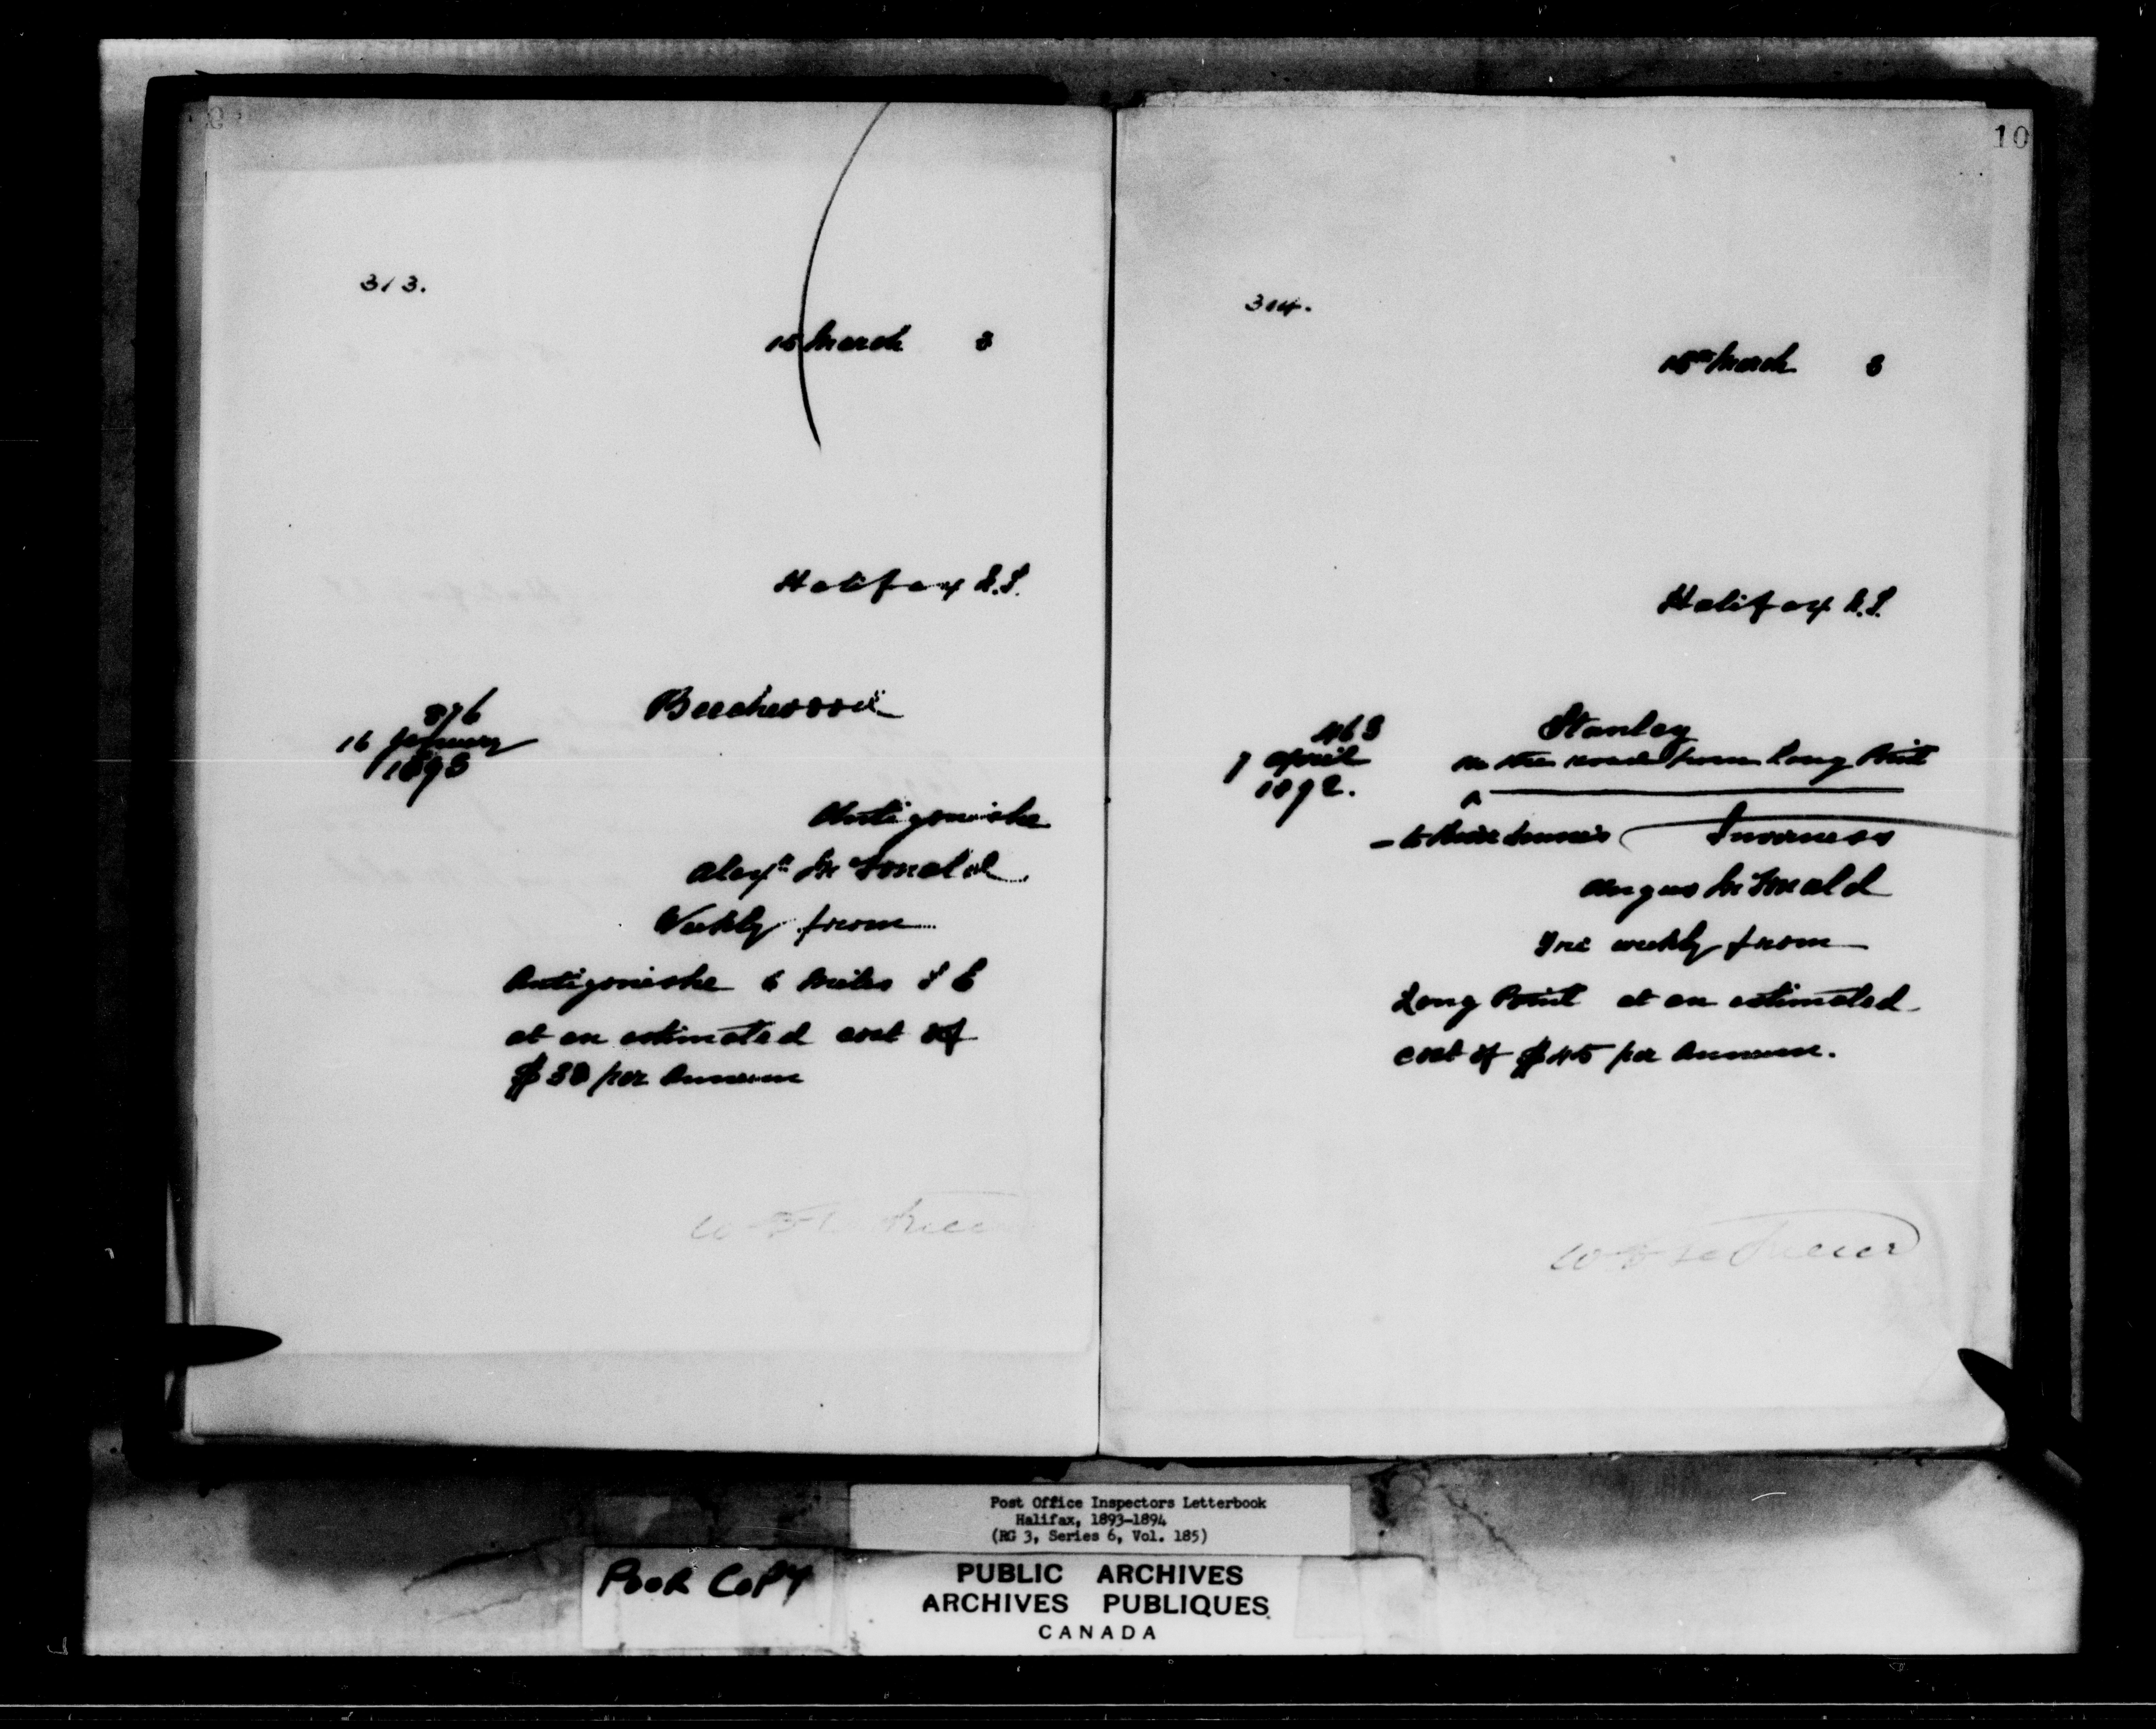 313.
15 March 3
Halifax N.S.
876
16 January
1893
Antigonishe
Alexr McDonald
Weekly from
Antigonishe 6 miles S E
at an estimated cost of
$30 per Annum
10
314.
15th March 3
Halifax N.S.
463
7 April
1892.
Stanley
on the road from Long Point
^
- to Inverness
Angus McDonald
Tri weekly from
Long Point at an estimated
cost of $45 per Annum.
Post Office Inspectors Letterbook
Halifax, 1893-1894
(RG 3, Series 6, Vol. 185)
POOR COPY
PUBLIC ARCHIVES
ARCHIVES PUBLIQUES
CANADA